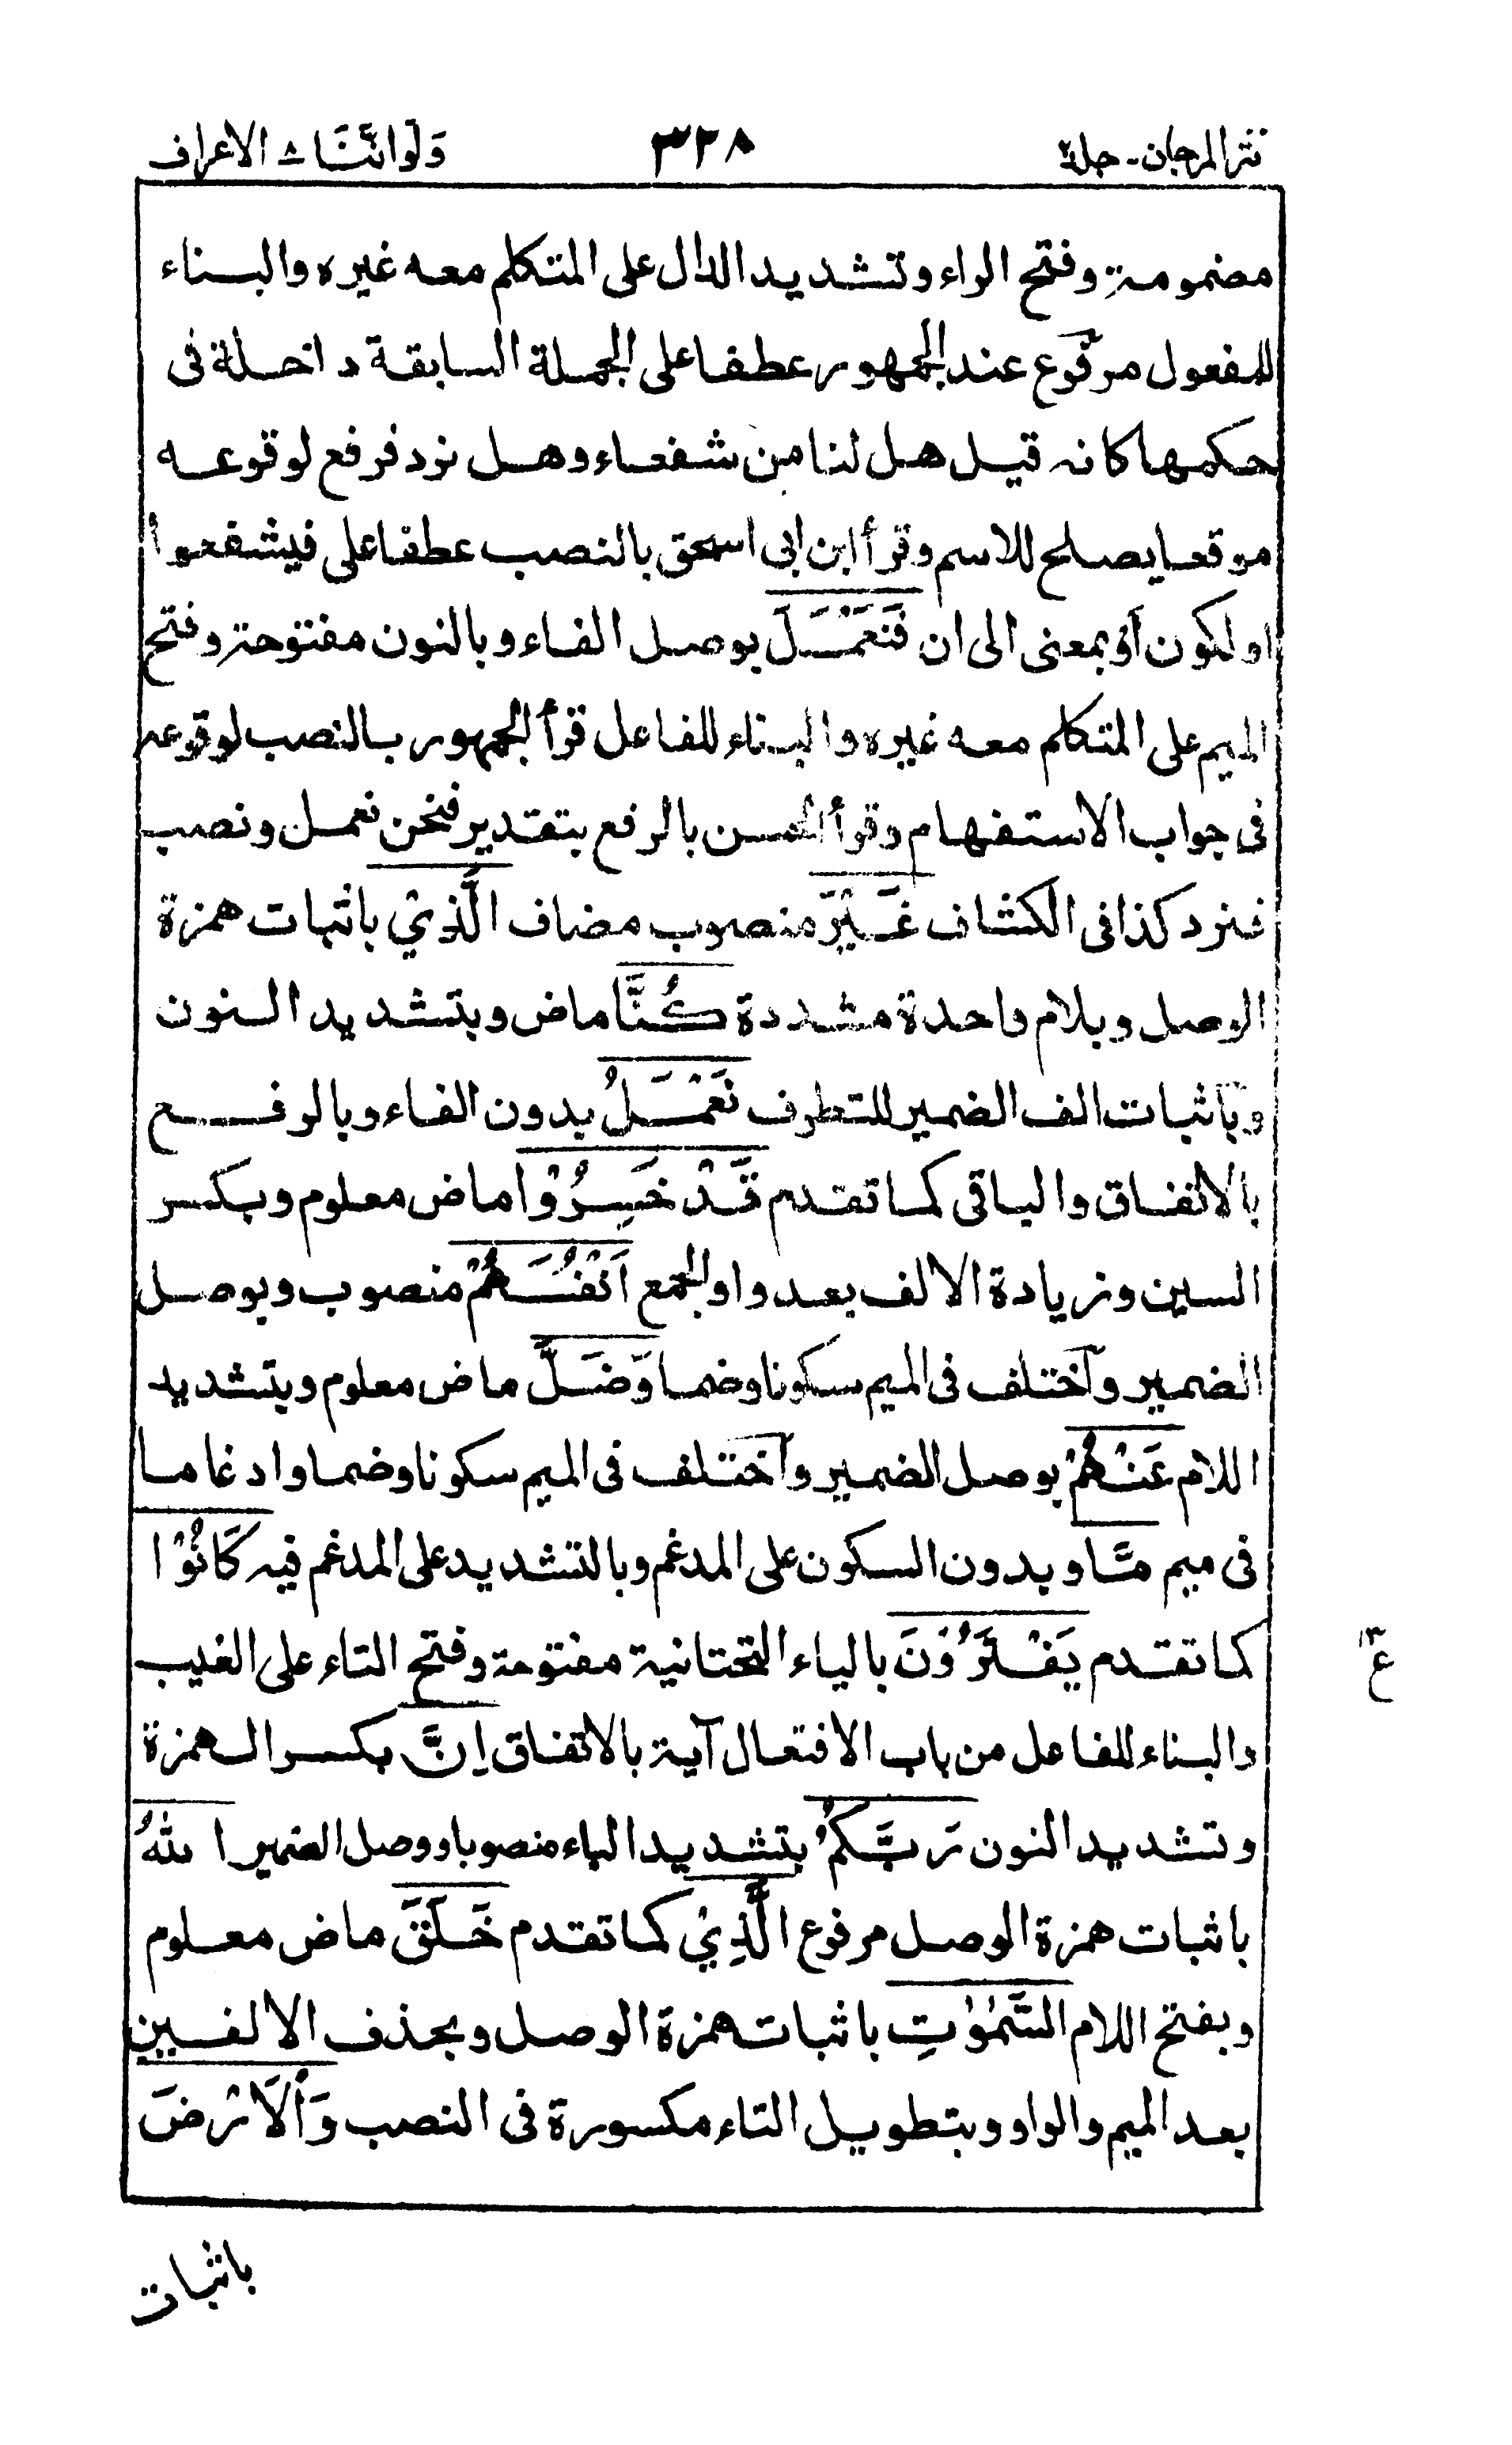 نثر المرجان - جلد٢
٣٢٨
وَلَوْ اَنَّنَا ٨ الاعراف
مضمومة وفتح الراء وتشديد الدال على المتكلم معه غيره والبناء
للمفعول مرفوع عند الجمهور عطفا على الجملة السابقة داخلة فى
حكمها كانه قيل هل لنا من شفعاء وهل نرد فرفع لوقوعه
موقعا يصلح للاسم وقرأ ابن ابى اسحق بالنصب عطفا على فيشفعوا
او لكون أو بمعنى الى ان فَنَعْمَلَ بوصل الفاء وبالنون مفتوحة وفتح
الميم على المتكلم معه غيره والبناء للفاعل قرأ الجمهور بالنصب لوقوعه
فى جواب الاستفهام وقرأ الحسن بالرفع بتقدير فنحن نعمل ونصب
فنرد كذا فى الكشاف غَيْرَ منصوب مضاف الَّذِيْ باثبات همزة
الوصل وبلام واحدة مشددة كُنَّا ماض وبتشديد النون
وباثبات الف الضمير للتطرف نَعْمَلُ بدون الفاء وبالرفع
بالاتفاق والباقى كما تقدم قَدْ خَسِرُوْا ماض معلوم وبكسر
السين وزيادة الالف بعد واو الجمع اَنْفُسَهُمْ منصوب وبوصل
الضمير واختلف فى الميم سكونا وضما وَضَلَّ ماض معلوم وبتشديد
اللام عَنْهُمْ بوصل الضمير واختلف فى الميم سكونا وضما وادغاما
فى ميم مَّا وبدون السكون على المدغم وبالتشديد على المدغم فيه كَانُوْا
كما تقدم يَفْتَرُوْنَ بالياء التحتانية مفتوحة وفتح التاء على الغيب
والبناء للفاعل من باب الافتعال آية بالاتفاق اِنَّ بكسر الهمزة
وتشديد النون رَبَّكُمُ بتشديد الباء منصوبا ووصل الضمير اللهُ
باثبات همزة الوصل مرفوع الَّذِيْ كما تقدم خَلَقَ ماض معلوم
وبفتح اللام السَّمٰوٰتِ باثبات همزة الوصل وبحذف الالفين
بعد الميم والواو وبتطويل التاء مكسورة فى النصب وَالْاَرْضَ
باثبات